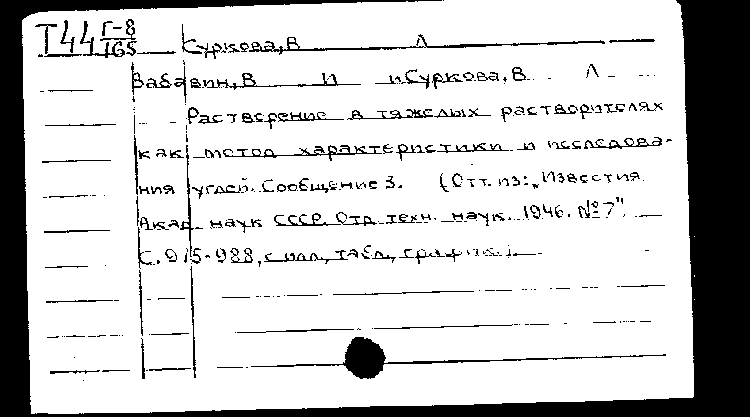 Т44 Г-8
165
Суркова, В Л
Забавин, В И и Суркова, В. Л.
Растворение в тяжелых растворителях
как метод характеристики и исследова-
ния углей. Сообщение 3. (Отт. из: „Известия
Акад. наук СССР. Отд. техн. наук. 1946. №7".
С. 975-988, с илл., табл., график.).